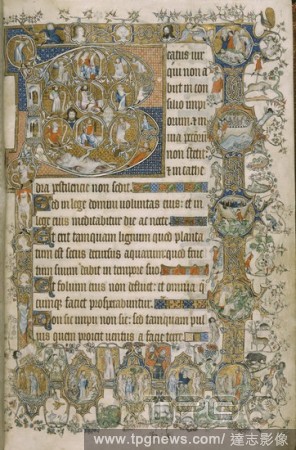 Beatus uir
qui non a
biit in con
silio impi
orum: & in
non stetit:
& in cathe
dra pestilencie non sedit.
Sed in lege domini uoluntas eius: et in
lege eius meditabitur die ac nocte.
Et erit tamquam lignum quod planta
tum est secus decursus aquarum: quod fruc
tum suum dabit in tempore suo
Et folium eius non defluet: et omnia q
cumque faciet prosperabuntur.
Non sic impii non sic: sed tamquam pul
uis quem proicit uentus a facie terre.
www.tpgnews.com/ 達志影像